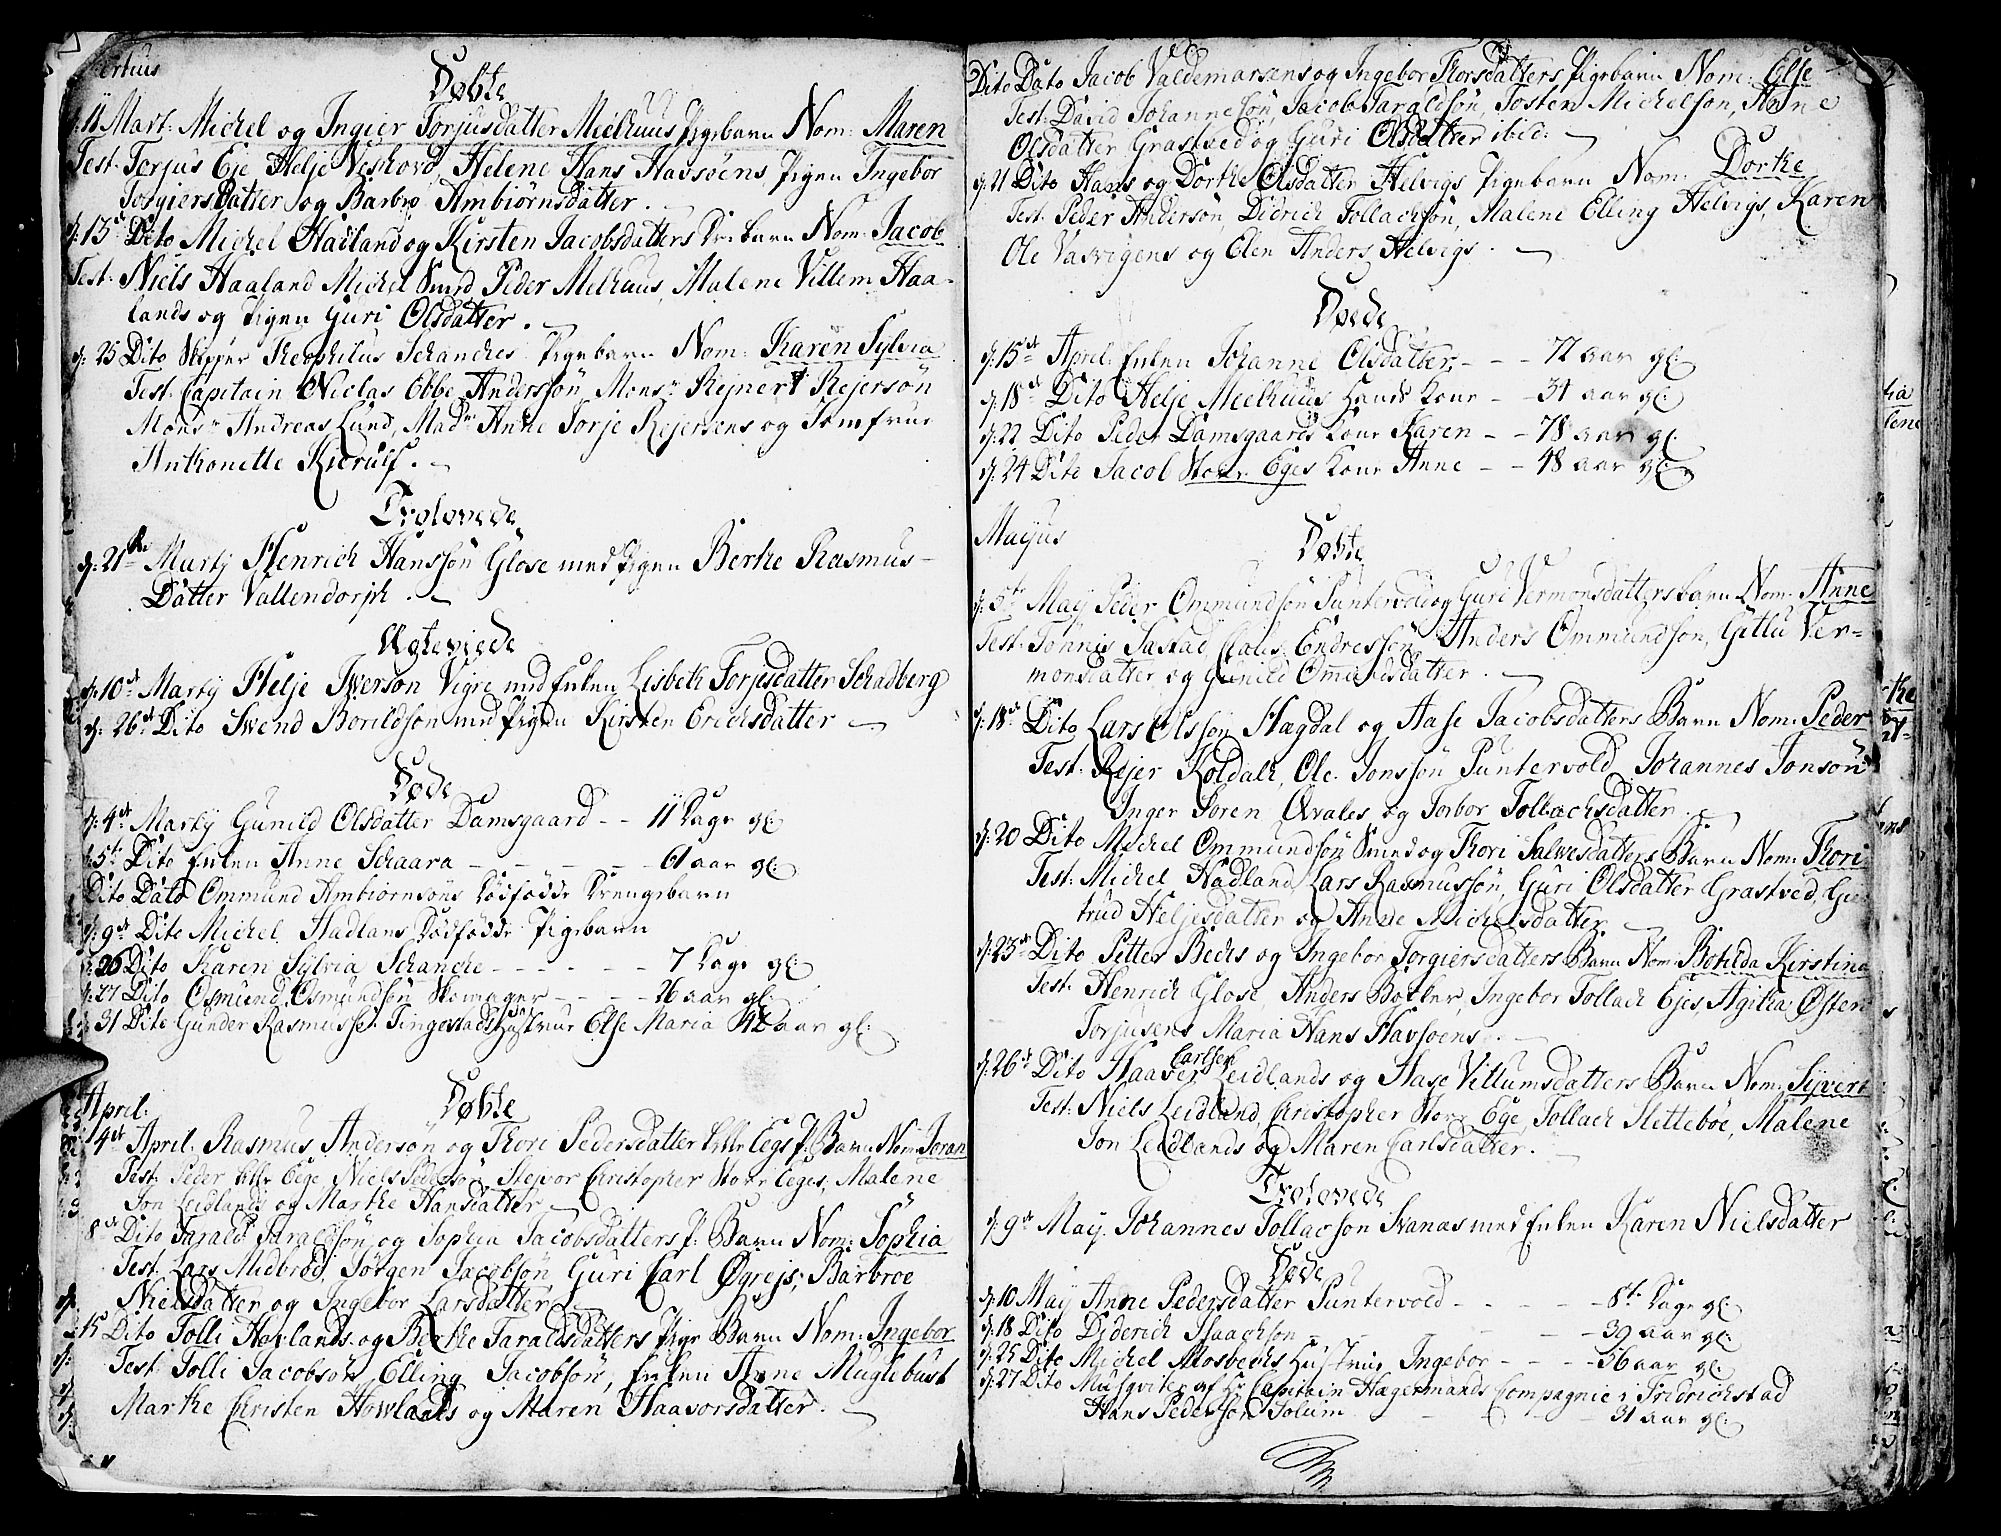 Døbte
11 Mart: Michel og Ingier Torjusdatter Meelhuus Pigebarn Nom: Maren
Test: Torjus Eje, Helje Neskovd, Helene Hans Havsøens, Pigen Ingebor
Torgiers Datter og Barbro Ambiørnsdatter.
d: 13 Dito Michel Hadland og Kirsten Jacobsdatters Drebarn Nom: Jacob
Test: Niels Haaland Michel Smed Peder Melhuus, Malene Villem Haa-
lands og Pigen Guri Olsdatter.
d: 25 Dito Skipper Theophilus Schanches Pigebarn Nom: Karen Sylvia
Test: Capitain Niclas Ebbe Anderssøn Mons: Rejnert Rejersøn
Mons: Andreas Lund, Mad: Anne Torje Rejersens og Jomfrue
Anthonette Kierulf.
Trolovede
d: 21 Martij Henrich Hanssøn Glose med Pigen Berthe Rasmus-
Datter Vallendorph.
Ægteviede
d: 10 Martij Helje Iverson Vigre med Enken Lisbeth Torjesdatter Schadberg
d: 26 Dito Swend Borildsøn med Pigen Kirsten Erichsdatter
Døde
d: 4 Martij Gunild Olsdatter Damsgaard - - 11 Dage gl:
d: 5 Dito Enken Anne Schaara - - - 61 aar gl:
Dito Dato Ommund Ambiørnsøns Dødfødde Drengebarn
d: 9 Dito Michel Hadlans Dødfødde Pigebarn
26 Dito Karen Sylvia Schanche - - - 7 Dage gl:
d: 27 Dito Osmund Osmundsøn - - - 26 aar gl:
31 Dito Gunder Rasmusse Tingestads Hustrue Else Maria 42 aar gl:
April:
Døbte
4 April: Rasmus Andersøn og Thori Pedersdatter Eegs P: Barn Nom: Joran
Test: Peder Ege, Niels Pedersøn Stejvor Christopher Store Eges, Malene
Jon Leidlands og Marthe Hansdatter
8 Dito Tarald Taraldsøn og Sophia Jacobsdatters P: Barn Nom: Sophia
Test: Lars Midbrød, Jørgen Jacobsøn, Guri Carl Øgrejs, Barbroe
Nielsdatter og Ingebor Larsdatter
15 Dito Tolli Havlands og Berthe Taraldsdatters Pige Barn Nom: Ingebor
Test: Tolli Jacobsøn Elling Jacobsøn, Enken Anne Muglebust
Marthe Christen Howlands og Maren Haavorsdatter.
Dito Dato Jacob Valdemarsens og Ingebor Thorsdatters Pigebarn Nom: Else
Test: David Johannesøn, Jacob Taraldsøn, Tosten Michelson, Anne
Olsdatter Grastved og Guri Olsdatter ibid:
d: 21 Dito Hans og Dorthe Olsdatter Helvigs Pigebarn Nom: Dorthe
Test: Peder Andersøn, Didrich Tollachsøn, Malene Elling Helvigs, Karen
Ole Vasvigens og Elen Anders Helvigs.
Døde
d: 15 April: Enken Johanne Olsdatter - - - 72 aar gl:
d: 18 Dito Helje Meelhuus Hands Kone - - 31 aar gl:
d: 22 Dito Peder Damsgaards Kone Karen - - 78 aar gl:
d: 24 Dito Jacob Store Eges Kone Anne - - 48 aar gl:
Mayus
Døbte
d: 5 May Peder Ommundsøn Puntervold og Guri Vermonsdatters barn Nom: Anne
Test: Tønnis Sastad, Claus Endressøn, Anders Ommundsøn, Gitlu Ver=
monsdatter og Gunild Omundsdatter.
d: 18 Dito Lars Olssøn Hægdal og Aase Jacobsdatters Barn Nom: Peder
Test: Rejer Koldahl, Ole Jonssøn Puntervold Johannes Jonsøn
Inger Søren Qvales og Torbor Tollachsdatter
d: 20 Dito Michel Ommundsøn Smed og Thori Salvesdatters Barn Nom: Thori
Test: Michel Hadland, Lars Rasmussøn, Guri Olsdatter Grastved, Ger
trud Heljesdatter og Anne Michelsdatter
d: 23 Dito Petter Bechs og Ingebor Torgiersdatters Barn Nom: Botilda Kirstina
Test: Henrich Glose, Anders Bøtker, Ingebor Tollach Ejes, Agitha Østen
Torjusens Maria Hans Havsøens.
d: 26 Dito Haaver Carlsen Leidlands og Aase Villumsdatters Barn Nom: Sijvert
Test: Niels Leidland, Christopher Store Ege, Tollach Slettebøe, Malene
Jon Leidlands og Maren Carlsdatter.
Trolovede
d: 9 May. Johannes Tollacsøn Svanæs med Enken Karen Nielsdatter
Døde
d: 10 May Anne Pedersdatter Puntervold - - - 8 Dage gl:
d: 18 Dito Diderich Isaachsøn - - - 39 aar gl:
d: 25 Dito Michel Mosbechs Hustrue Ingebor - - - 36 aar gl:
d: 27 Dito Musqviter af Hr Capitain Hægermands Compagnie i Fridrichstad
Hans Pedersøn Solum - - - 31 aar gl: